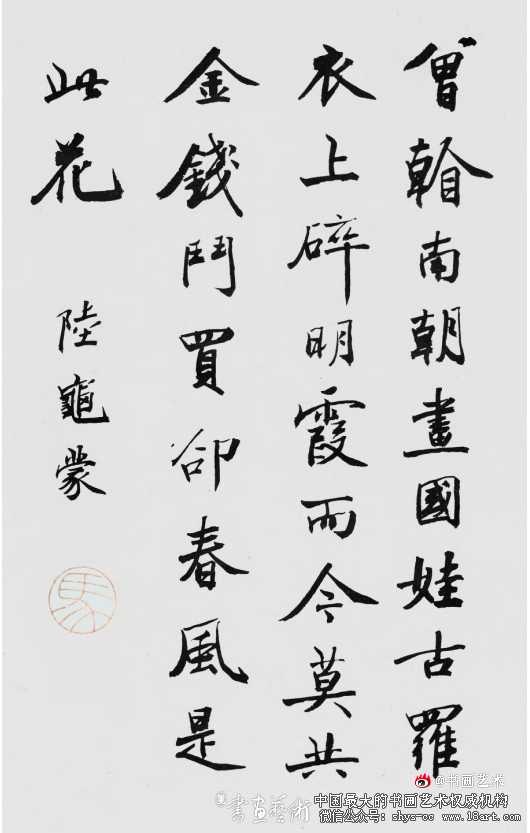 曾看南朝畫國娃古羅
衣上碎明霞而今莫共
金錢鬥買卻春風是
此花
陸龜蒙
@书画艺术
書畫藝術
中国最大的书画艺术权威机构
微信公众号：shys-cc www.18art.com